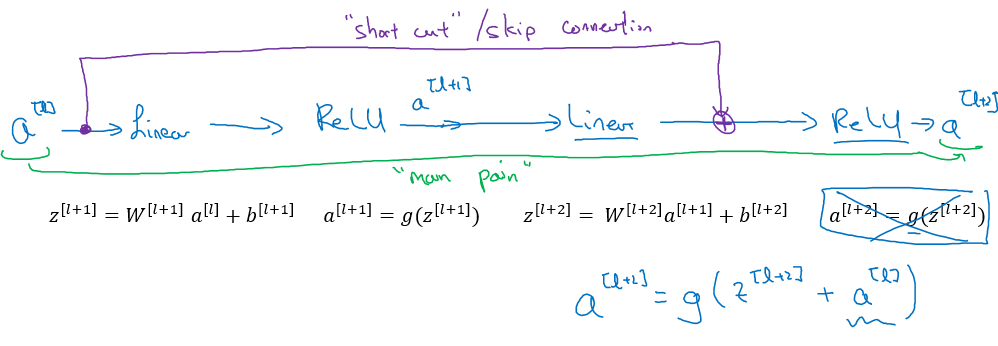 "short cut" / skip connection
a^[l] → Linear → ReLU a^[l+1] → Linear → ReLU → a^[l+2]
"main pain"
z^[l+1] = W^[l+1] a^[l] + b^[l+1] a^[l+1] = g(z^[l+1]) z^[l+2] = W^[l+2] a^[l+1] + b^[l+2] a^[l+2] = g(z^[l+2])
a^[l+2] = g(z^[l+2] + a^[l])